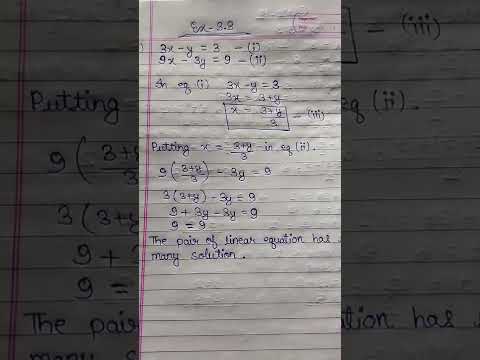 Ex-3.3
3x - y = 3 - (i)
9x - 3y = 9 - (ii)
In eq (i) 3x - y = 3
3x = 3+y
x = 3+y/3 - (iii)
Putting x = 3+y/3 in eq (ii).
9(3+y/3) - 3y = 9
3(3+y) - 3y = 9
9 + 3y - 3y = 9
9 = 9
The pair of linear equation has
many solution.